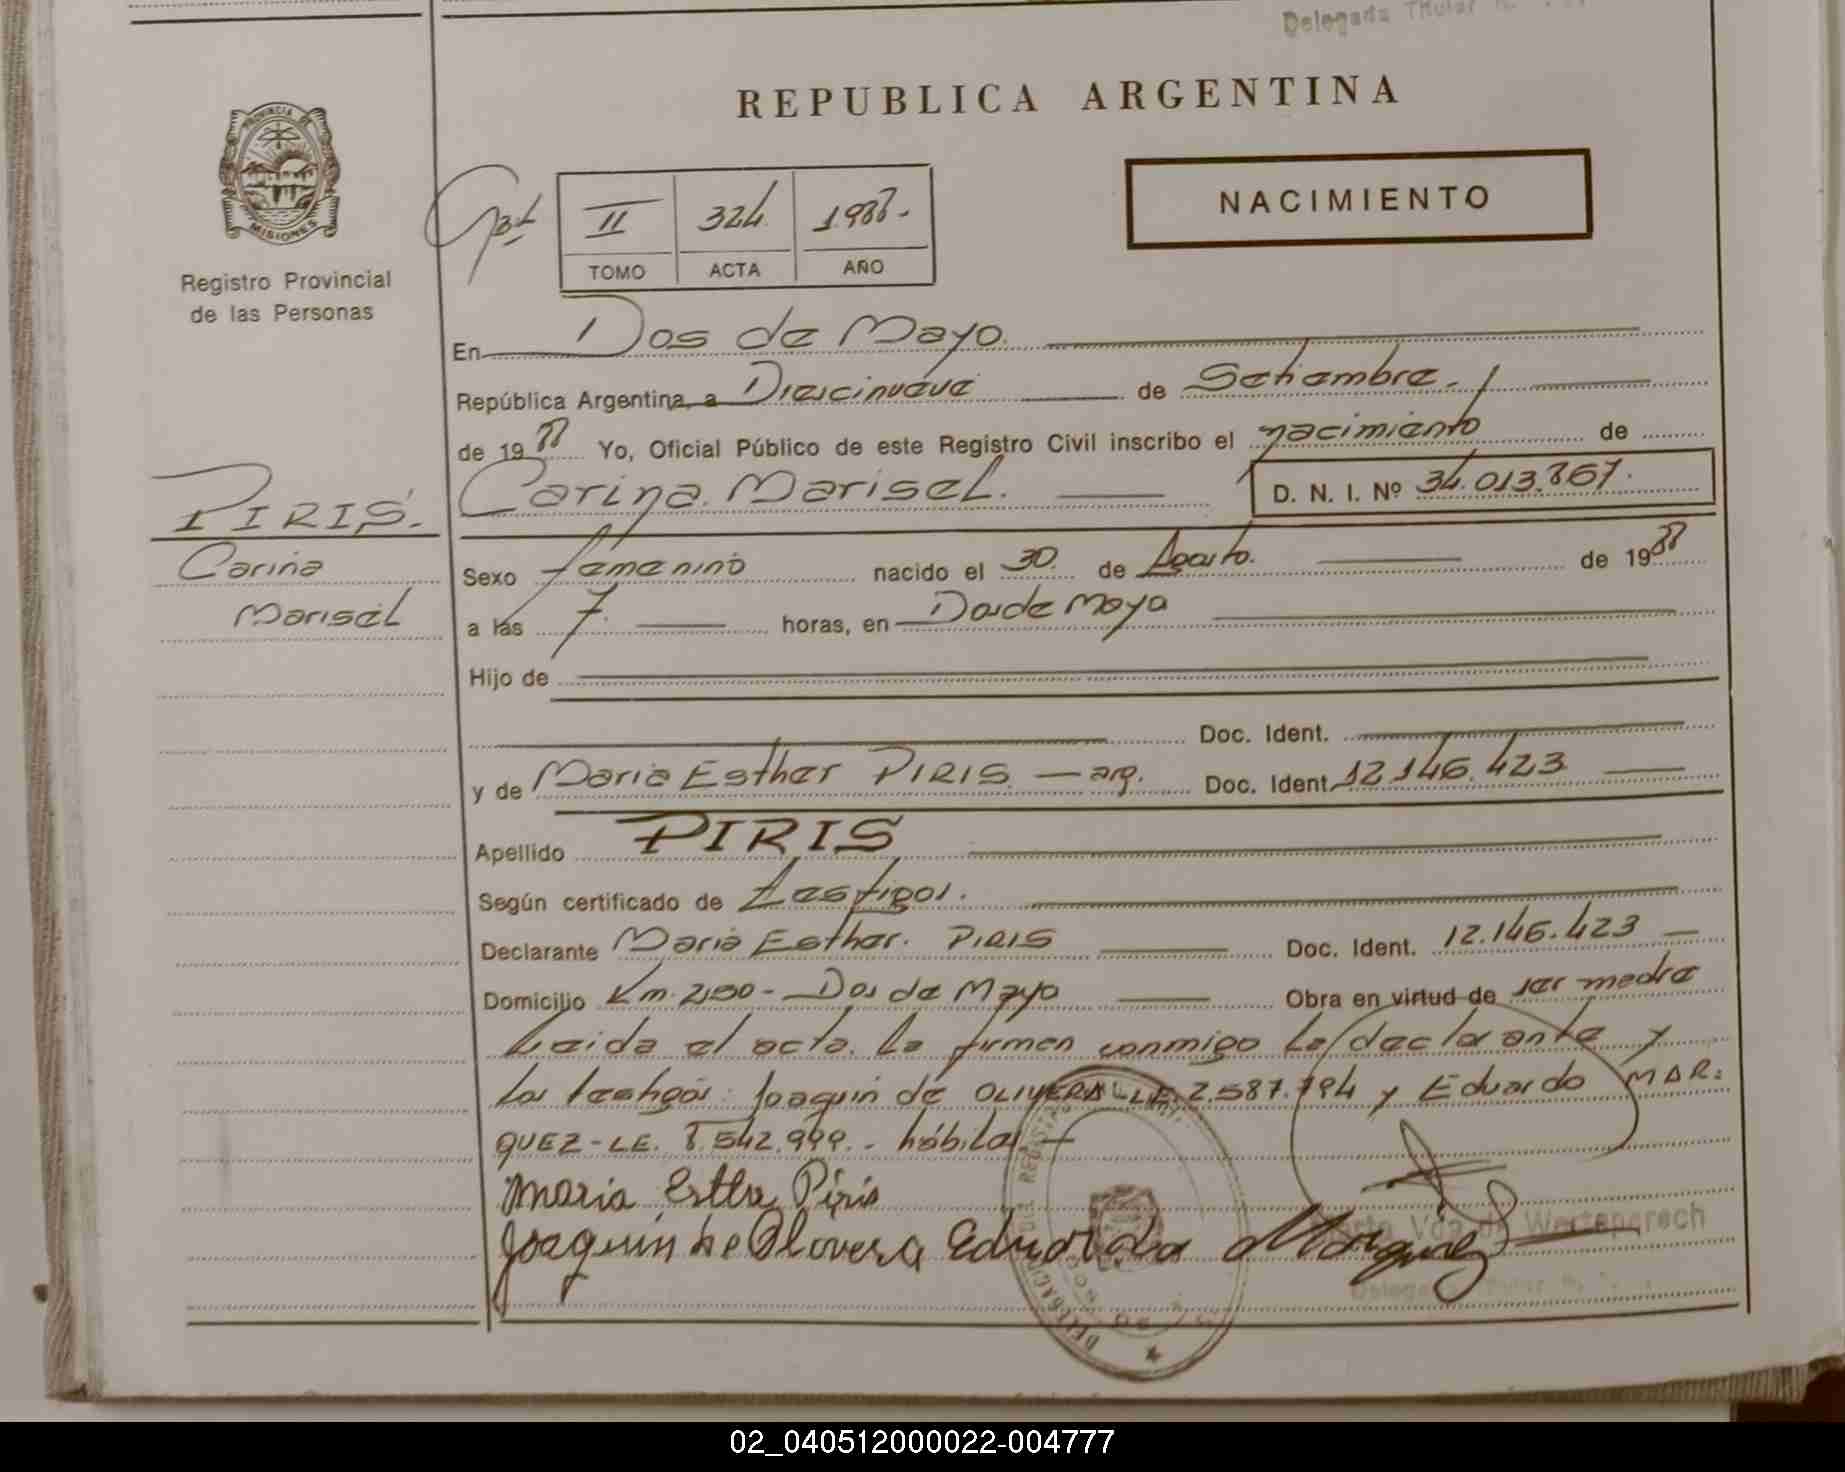 Delegada Titular
REPUBLICA ARGENTINA
PROVINCIA DE
MISIONES
NACIMIENTO
II 324 1.988.-
TOMO ACTA AÑO
Registro Provincial
de las Personas
En Dos de Mayo.
República Argentina, a Diescinueve de Setiembre.
de 1988 Yo, Oficial Público de este Registro Civil inscribo el nacimiento de
Carina Marisel. D. N. I. Nº 34.013.867.
PIRIS.
Carina
Marisel
Sexo femenino nacido el 30 de Agosto. de 1988
a las 7. horas, en Dos de Mayo
Hijo de
Doc. Ident.
y de Maria Esther PIRIS - arg. Doc. Ident. 12.146.423
Apellido PIRIS
Según certificado de testigos.
Declarante Maria Esther. PIRIS Doc. Ident. 12.146.423
Domicilio Km. 250 - Dos de Mayo Obra en virtud de ser madre
Leida el acta. La firman conmigo la declarante y
los testigos: Joaquin de OLIVERA LE. 2.587.794 y Eduardo MAR=
QUEZ - LE. 8.542.999. - hábiles. -
Maria Esthe Piris
Joaquin de Olivera Eduardo Marquez
Vda de Wertengrech
02_040512000022-004777